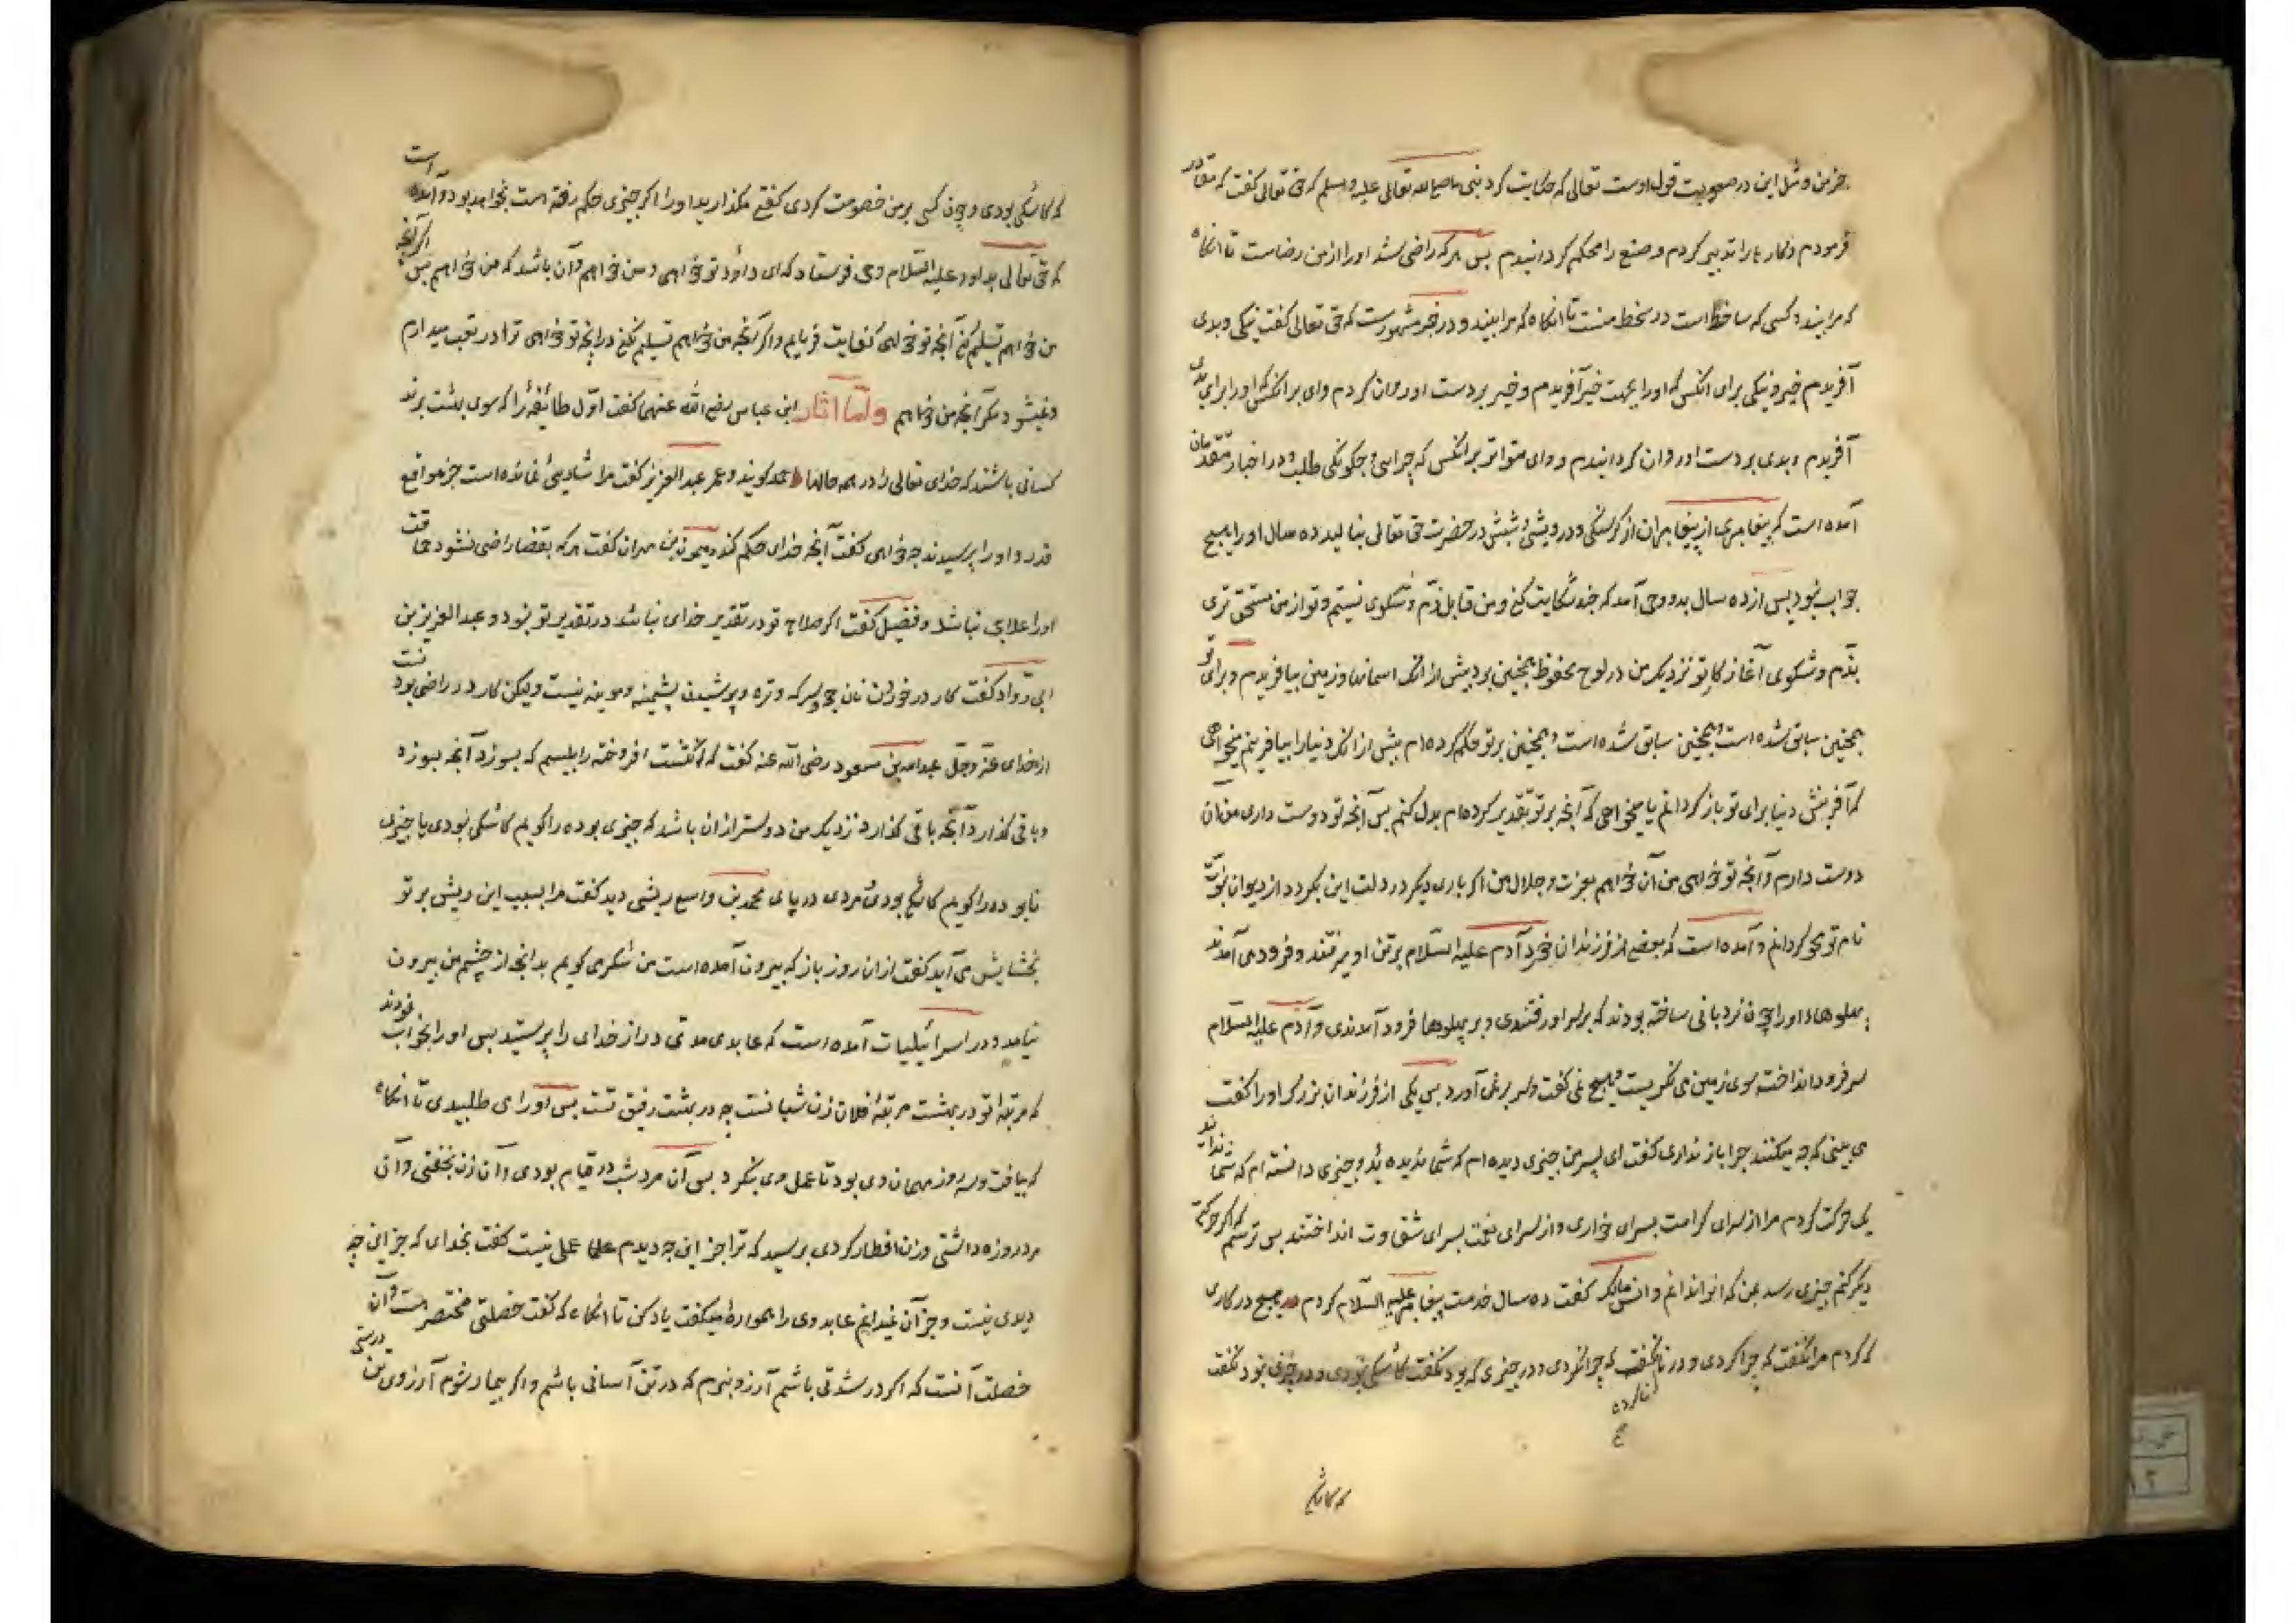 جز من و مثل این در صحوبت قول اوست تعالی که حکایت کرد نبی ما صلی الله تعالی علیه و سلم که حق تعالی گفت که مقادیر
فرمودم و کارها را تدبیر کردم و صنع را محکم گردانیدم پس هر که راضی شد او را از من رضاست تا انگاه
که مرا بیند و کسی که ساخط است در سخط منست تا انگاه که مرا بیند و در خبر مشهورست که حق تعالی گفت نیکی و بدی
آفریدم خیر و نیکی برای انکس که او را بجهت خیر آفریدم و خیر بر دست او روان کردم و وای بر انکس که او را برای بدی
آفریدم و بدی بر دست او روان گردانیدم و وای متواتر بر انکس که چرایی و چگونگی طلبد و در اخبار متقدمان
آمده است که پیغامبری از پیغامبران از گرسنگی و درویشی و شپش در حضرت حق تعالی بنالید ده سال او را هیچ
جواب نبود پس از ده سال بدو وحی آمد که چند شکایت کنی و من قابل ذم و شکوی نیستم و تو از من مستحق تری
بذم و شکوی آغاز کار تو نزدیک من در لوح محفوظ همچنین بود پیش از انک اسمانها و زمین بیافریدم و برای تو
همچنین سابق شده است و همچنین سابق شده است و همچنین بر تو حکم کرده ام پیش از انکه دنیا را بیافرینم میخواهی
که آفرینش دنیا برای تو باز گردانم یا میخواهی که آنچه بر تو تقدیر کرده ام بدل کنم پس آنچه تو دوست داری من آن
دوست دارم و آنچه تو خواهی من آن خواهم بعزت و جلال من اگر باری دیگر در دلت این بگردد از دیوان نبوت
نام تو محو گردانم و آمده است که بعضی از فرزندان خرد آدم علیه السلام بر تن او میرفتند و فرود می آمدند
پهلوهاء او را چون نردبانی ساخته بودند که بر سر او رفتندی و بر پهلوها فرود آمدندی و آدم علیه السلام
سر فرود انداخته سوی زمین می نگریست و هیچ نمی گفت و سر بر نمی آورد پس یکی از فرزندان بزرگ او را گفت
می بینی که چه میکنند چرا باز نداری گفت ای پسر من چیزی دیده ام که شما ندیده ئید و چیزی دانسته ام که شما ندانید
یک حرکت کردم مرا از سرای کرامت بسرای خواری و از سرای نعمت بسرای شقاوت انداختند پس ترسم که اگر حرکتی
دیگر کنم چیزی رسد بمن که انرا ندانم و انس مالک گفت ده سال خدمت پیغامبر علیه السلام کردم هیچ در کاری
که کردم مرا نگفت که چرا کردی و در ناکرده نگفت که چرا نکردی و در چیزی که بود نگفت کاشکی نبودی و در چیزی نبود نگفت
که کاشکی
که کاشکی بودی و چون کسی بر من خصومت کردی گفتی بگذارید او را اگر چیزی حکم رفته است بخواهد بود و آمده است
که حق تعالی بداود علیه السلام وحی فرستاد که ای داود تو خواهی و من خواهم و آن باشد که من خواهم پس اگر آنچه
من خواهم تسلیم کنی آنچه تو خواهی کفایت فرمایم و اگر آنچه من خواهم تسلیم نکنی در آنچه تو خواهی ترا در تعب میدارم
و نمیشود مگر آنچه من خواهم واما آثار ابن عباس رضی الله عنهما گفت اول طائفه را که سوی بهشت برند
کسانی باشند که خدای تعالی را در همه حالها حمد گویند و عمر عبد العزیز گفت مرا شادیی نمانده است جز مواقع
قدر و او را پرسیدند چه خواهی گفت آنچه خدای حکم کند و میمون بن مهران گفت هر که بقضا راضی نشود حماقت
او را علاجی نباشد و فضیل گفت اگر صلاح تو در تقدیر خدای نباشد در تقدیر تو نبود و عبد العزیز بن
ابی رواد گفت کار در خوردن نان جو و سرکه و تره و پوشیدن پشمینه و موینه نیست ولیکن کار در راضی بودنست
از خدای عز و جل عبدالله بن مسعود رضی الله عنه گفت که انگشت افروخته را بلیسم که بسوزد آنچه بسوزد
و باقی گذارد آنچه باقی گذارد نزدیک من دوستر از ان باشد که چیزی بوده را گویم کاشکی نبودی یا چیزی
نابوده را گویم کاشکی بودی و مردی در پای محمد بن واسع ریشی دید گفت مرا بسبب این ریش بر تو
بخشایش می آید گفت از ان روز باز که بیرون آمده است من شکر می گویم بدانچه از چشم من بیرون
نیامد و در اسرائیلیات آمده است که عابدی مدتی دراز خدای را پرستید پس او را بخواب نمودند
که مرتبه تو در بهشت مرتبه فلان زن شبانست چه در بهشت رفیق تست پس او را می طلبیدی تا انگاه
که بیافت و سه روز مهمان وی بود تا عمل وی بنگرد پس آن مرد شب در قیام بودی و آن زن بخفتی و آن
مرد روزه داشتی و زن افطار کردی پرسید که ترا جز این چه دیدم عملی نیست گفت بخدای که جز این چه
دیدی نیست و جز آن نمیدانم عابد وی را همواره میگفت یاد کن تا انگاه که گفت خصلتی مختصر است و آن
خصلت آنست که اگر در شدتی باشم آرزو نبرم که در تن آسانی باشم و اگر بیمار شوم آرزوی تن درستی